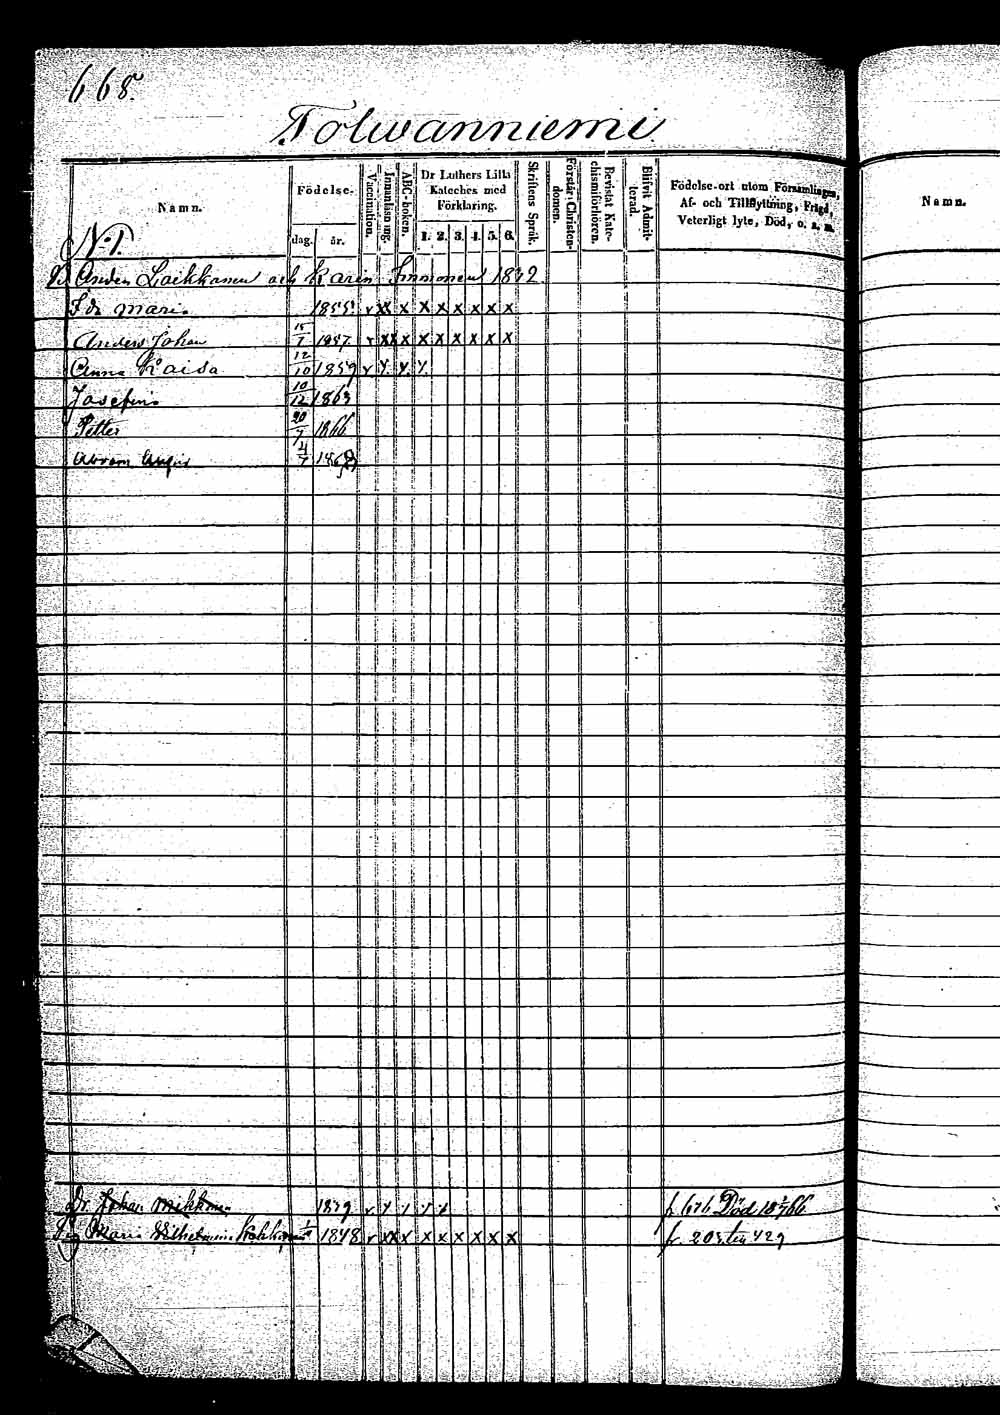 668.
Tolwanniemi
Namn.
Födelse-
dag. år.
Vaccination.
Innanläsning.
ABC-boken.
Dr Luthers Lilla Kateches med Förklaring.
1. 2. 3. 4. 5. 6.
Skriftens Språk.
Förstår Christendomen.
Bevistat Katechismiförhören.
Blifvit Admitterad.
Födelse-ort utom Församlingen,
Af- och Tillflyttning, Frägd,
Veterligt lyte, Död, o. s. m.
Namn.
N:1.
Anders Laikkanen och Karin Immonen 1832
Maria 1855 v xx x x x x x x x
Anders Johan 15/7 1857 v xx x x x x x x x
Anna Kaisa 12/10 1859 v
Josefina 10/12 1863
Petter 20/7 1866
Abram 4/7
Dr. Johan Mikkonen 1839 Död 66
Maria Wilhelmina 1848 v xx x x x x x x x fr. 203 till 429